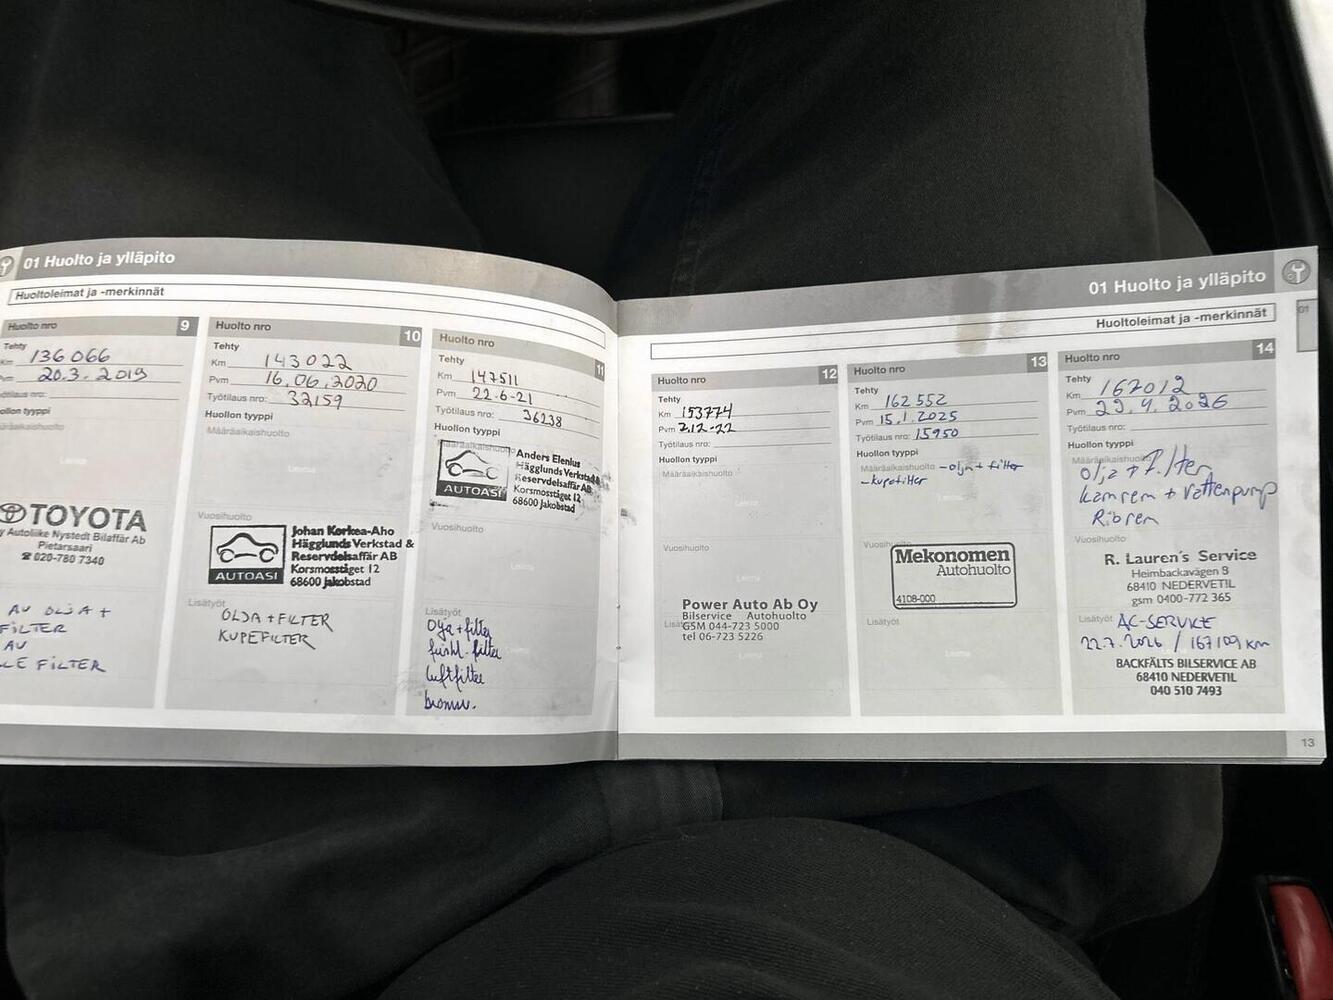 01 Huolto ja ylläpito
Huoltoleimat ja -merkinnät
Huolto nro 9
Tehty
Km 136 066
Pvm 20.3.2019
Työtilaus nro:
Huollon tyyppi
Määräaikaishuolto
Leima
TOYOTA
Autoliike Nystedt Bilaffär Ab
Pietarsaari
☎ 020-780 7340
AV OLJA +
FILTER
AV
LE FILTER
Huolto nro 10
Tehty
Km 143 022
Pvm 16.06.2020
Työtilaus nro: 32159
Huollon tyyppi
Määräaikaishuolto
Leima
Vuosihuolto
AUTOASI
Johan Korkea-Aho
Hägglunds Verkstad &
Reservdelsaffär AB
Korsmosståget 12
68600 Jakobstad
Lisätyöt
OLJA + FILTER
KUPEFILTER
Huolto nro 11
Tehty
Km 147511
Pvm 22-6-21
Työtilaus nro: 36238
Huollon tyyppi
Määräaikaishuolto
AUTOASI
Anders Elenius
Hägglunds Verkstad &
Reservdelsaffär AB
Korsmosståget 12
68600 Jakobstad
Vuosihuolto
Leima
Lisätyöt
Olja + filter
luftfilter
01 Huolto ja ylläpito
Huoltoleimat ja -merkinnät
01
Huolto nro 12
Tehty
Km 153774
Pvm 7.12-22
Työtilaus nro:
Huollon tyyppi
Määräaikaishuolto
Leima
Vuosihuolto
Leima
Power Auto Ab Oy
Bilservice Autohuolto
GSM 044-723 5000
tel 06-723 5226
Huolto nro 13
Tehty
Km 162 552
Pvm 15.1.2025
Työtilaus nro: 15950
Huollon tyyppi
Määräaikaishuolto - olja + filter
- kupefilter
Leima
Vuosihuolto
Mekonomen
Autohuolto
4108-000
Lisätyöt
Leima
Huolto nro 14
Tehty
Km 167012
Pvm 29.4.2026
Työtilaus nro:
Huollon tyyppi
Määräaikaishuolto
olja + filter
kamrem + vattenpump
Ribrem
Vuosihuolto
R. Lauren's Service
Heimbackavägen 8
68410 NEDERVETIL
gsm 0400-772 365
Lisätyöt AC-SERVICE
22.7.2026 / 167109 km
BACKFÄLTS BILSERVICE AB
68410 NEDERVETIL
040 510 7493
13